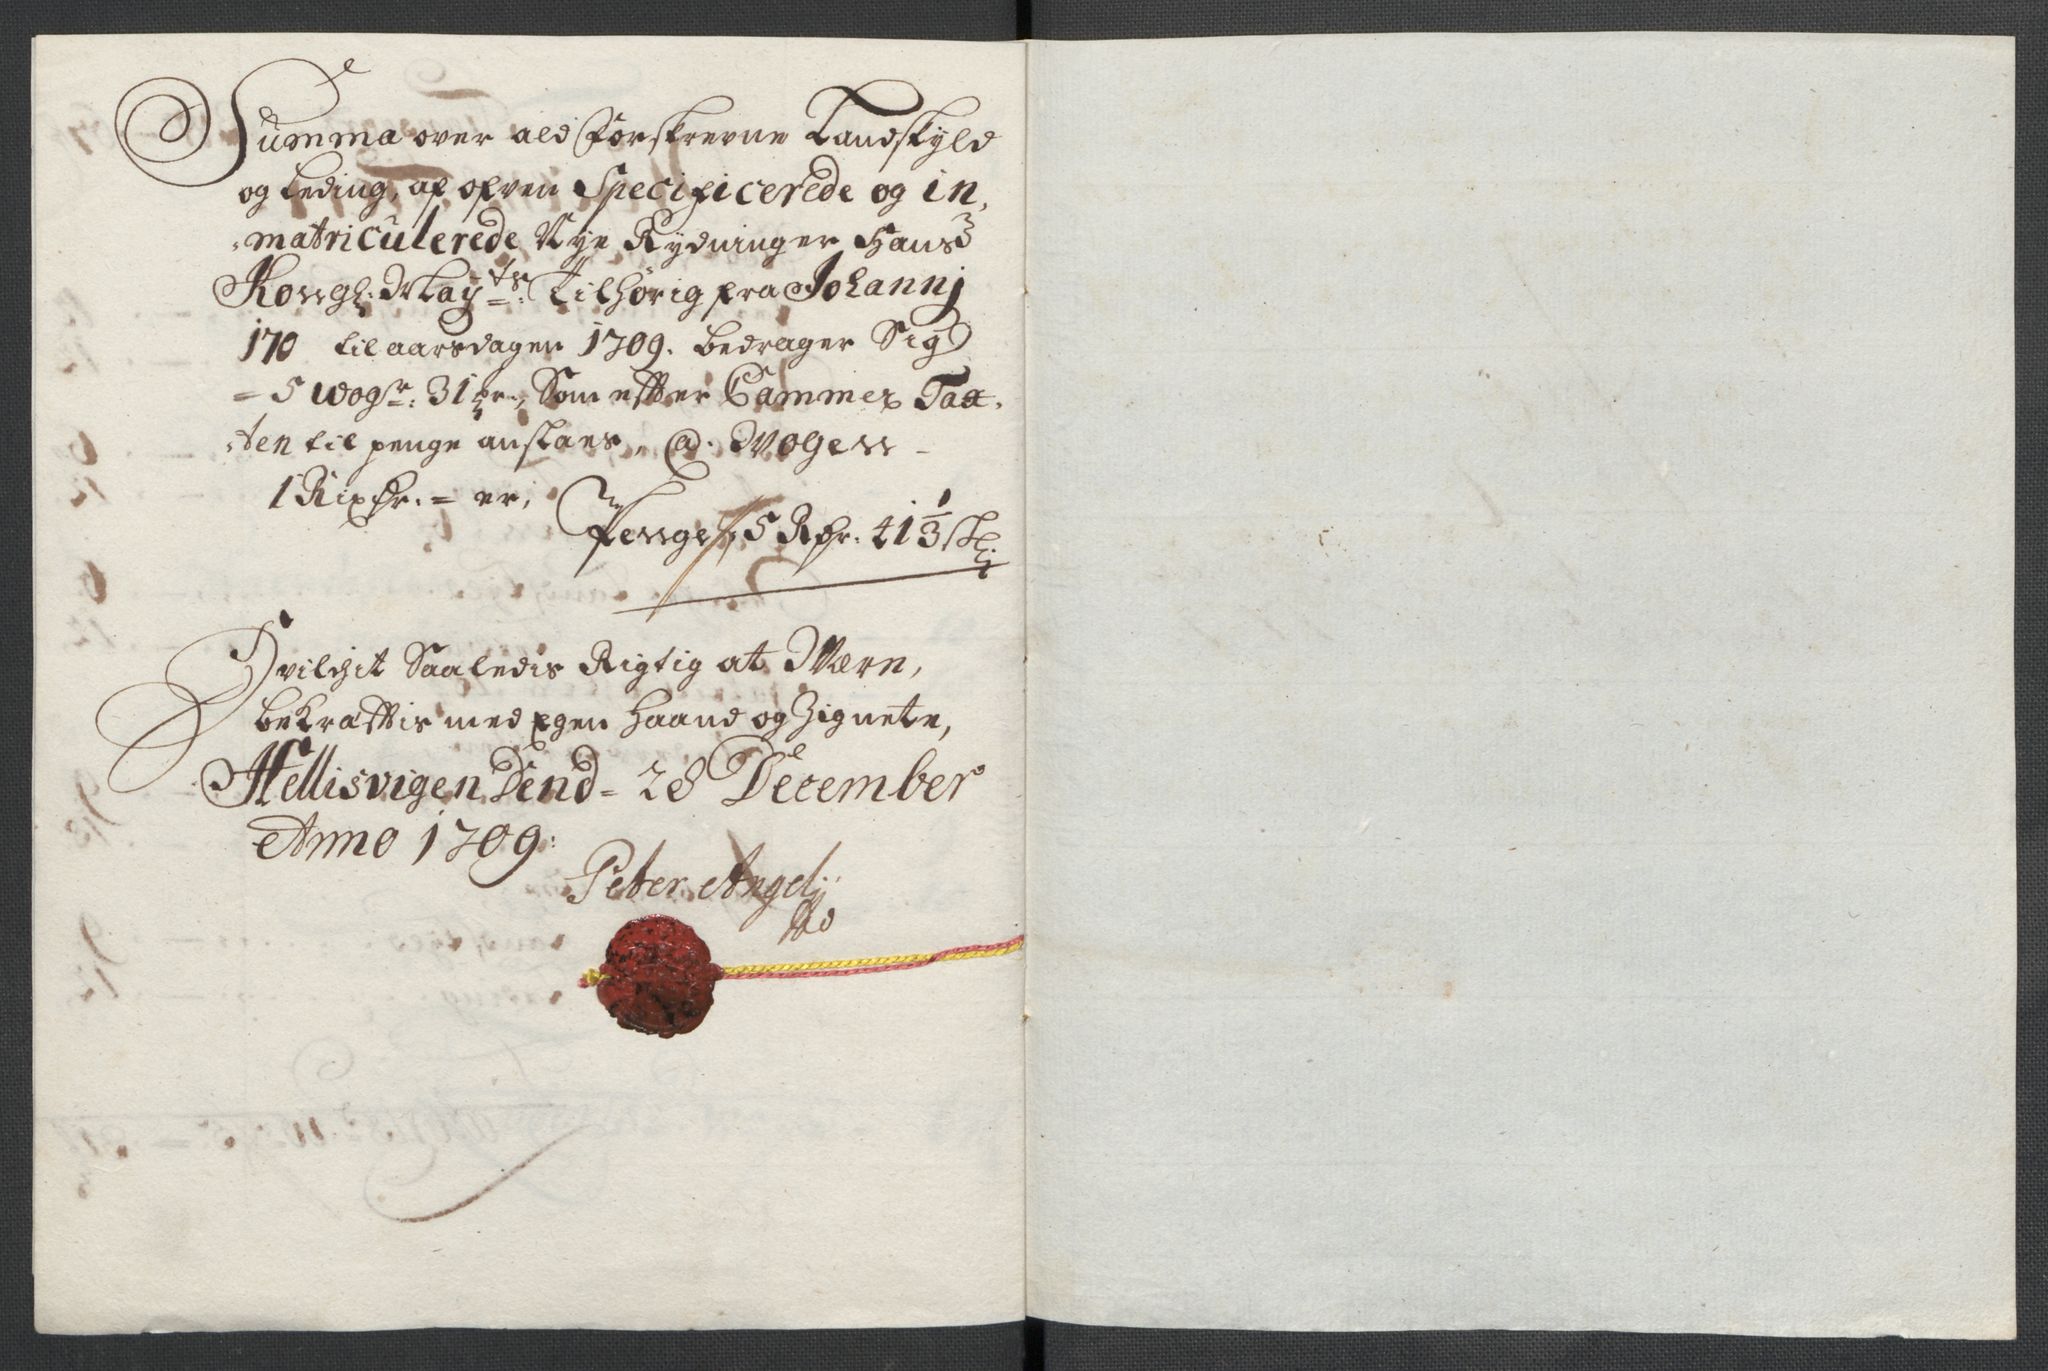 Summa over ald forskrevne Landskyld
og Leding, af ofven Specificerede og in,
,matriculerede Nye Rydninger Hans
Kongl: May:ts: tilhørig fra Johannj
170 til aarsdagen 1709. bedrager Sig
= 5 wogr: 31 pr., Som effter Cammer Tax,
,ten til penge anslaes, @. Wogen -
1 Rixdr. = er,
Penge 5 Rdr. 41 1/3 sk:
Hvilchit Saaledis Rigtig at Være,
bekrafftis med egen Haand og Zignete,
Hellisvigen Dend = 28 December
Anno 1709:
Peter Angelj